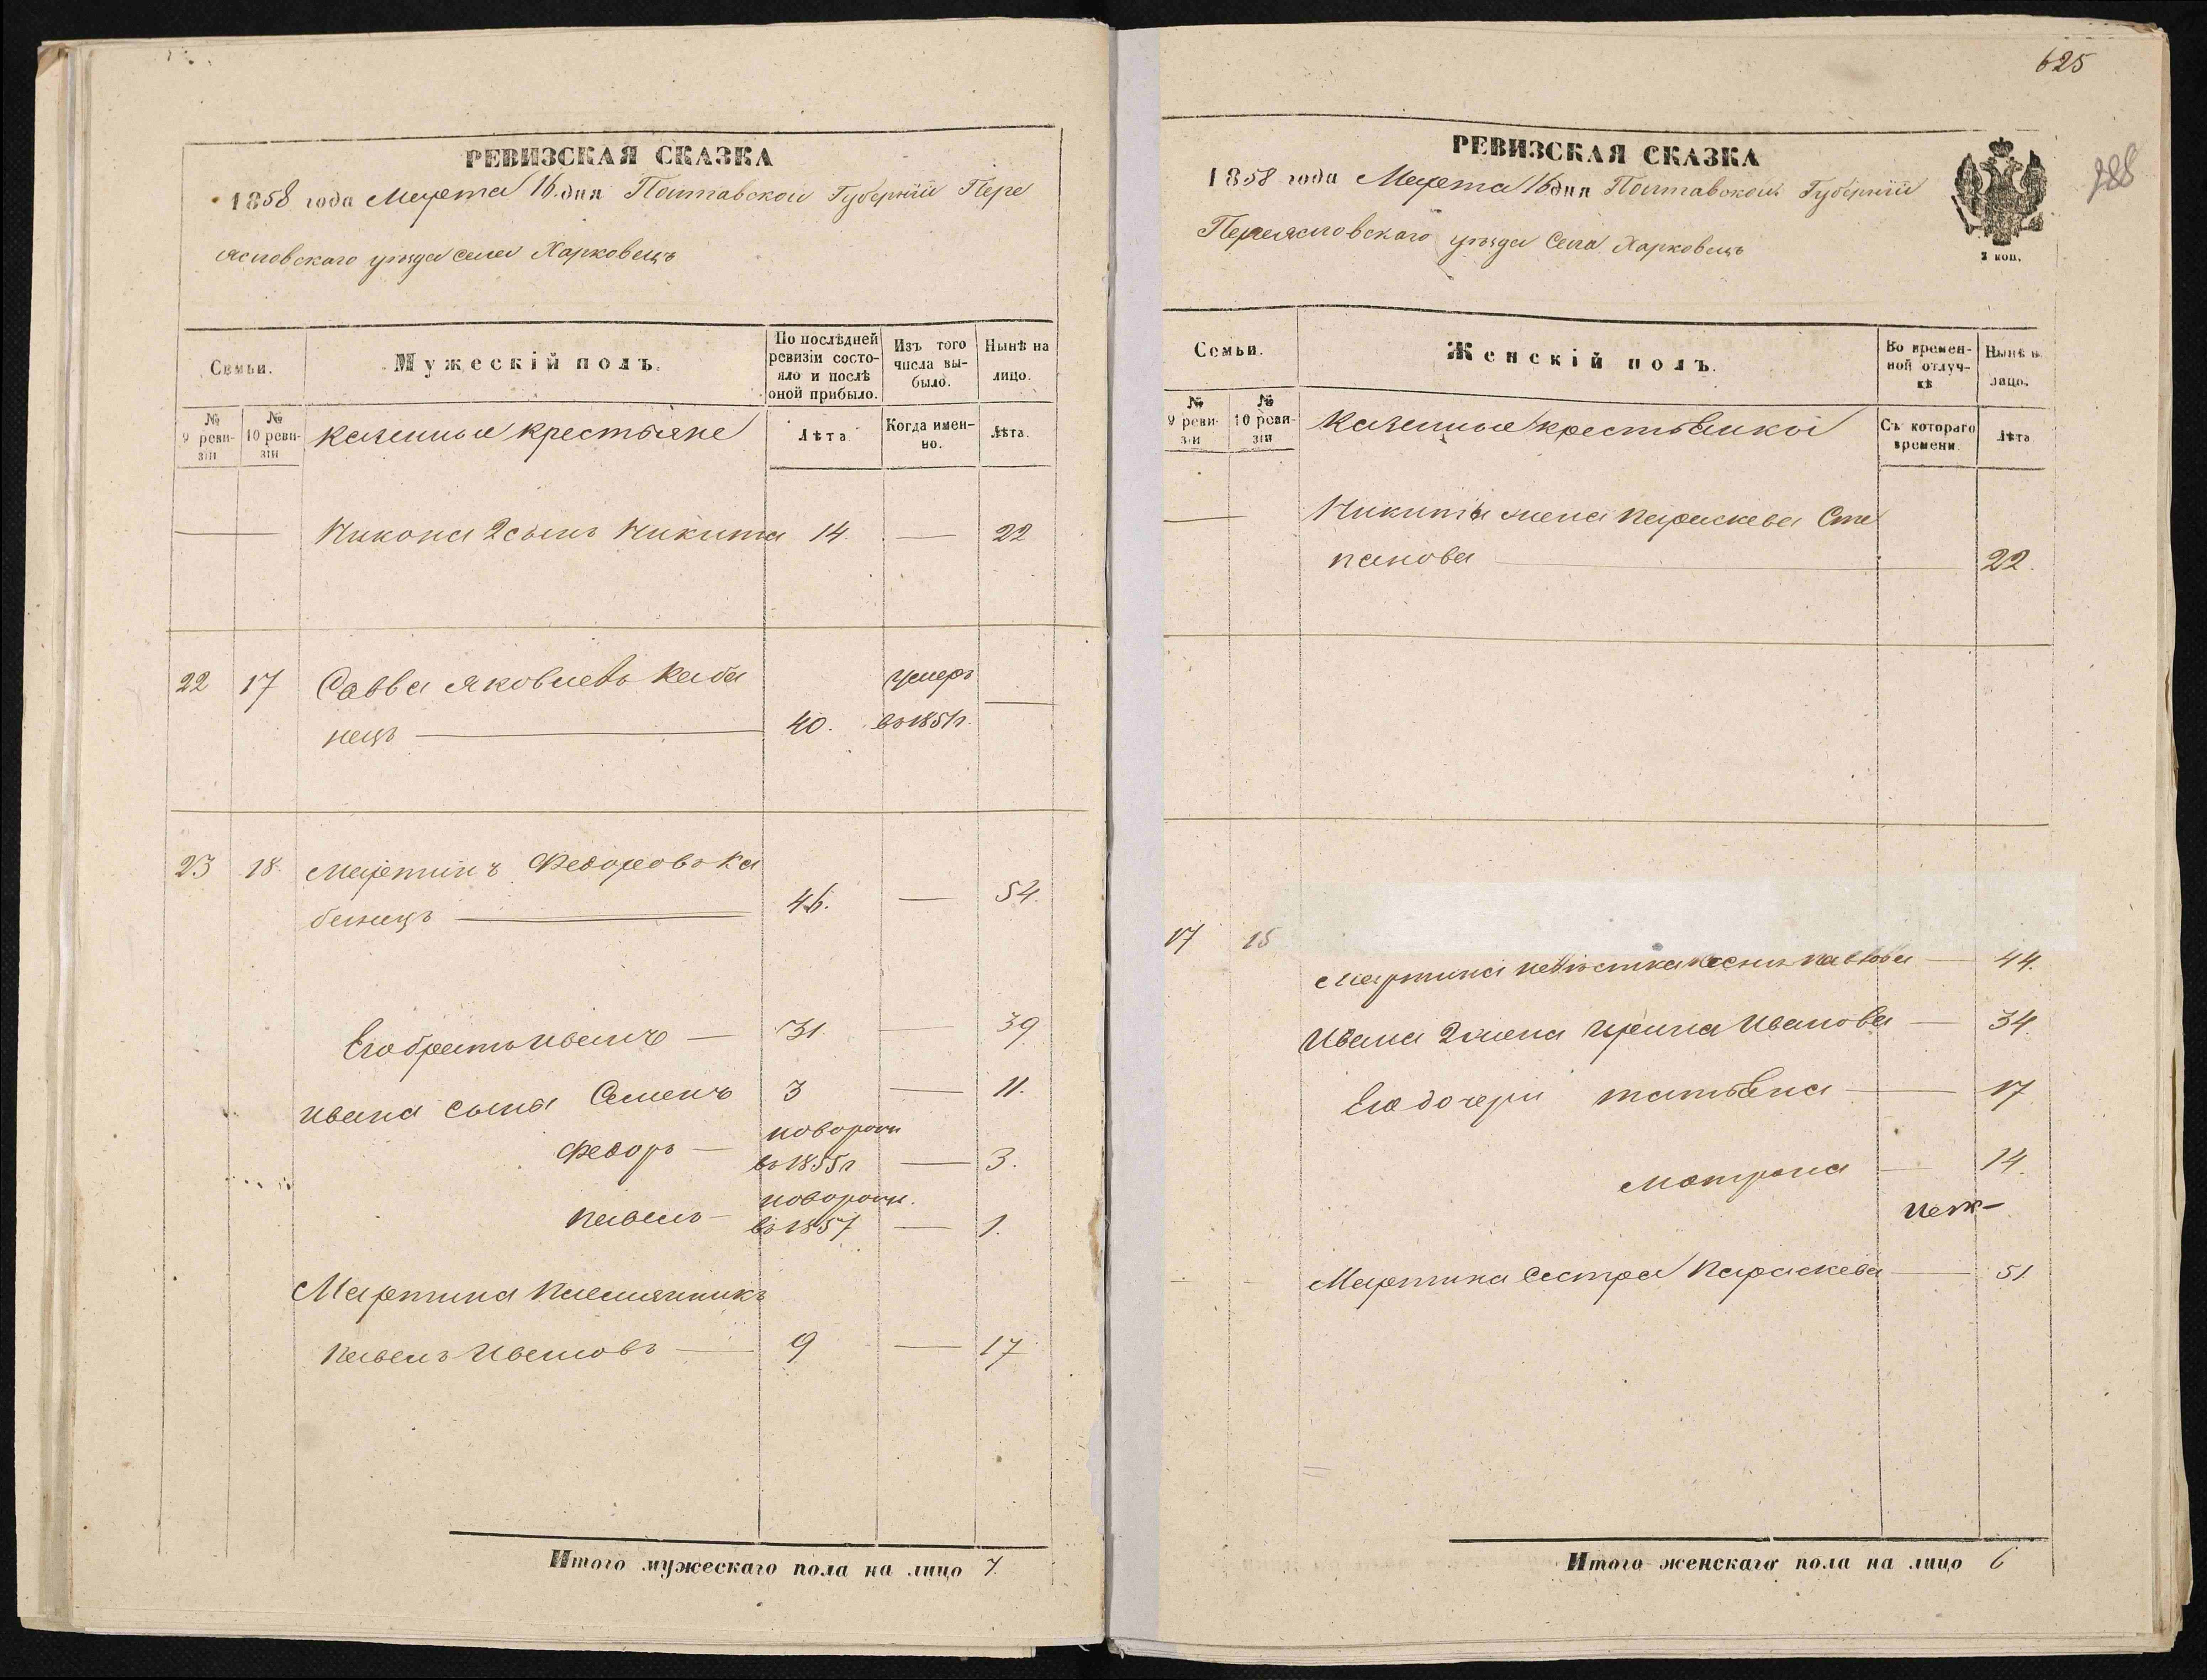 РЕВИЗСКАЯ СКАЗКА
1858 года Марта 16 дня Полтавской Губерніи Пере
ясловскаго уѣзда села Харковецъ
Семьи.
Мужескій полъ.
По послѣдней ревизіи состояло и послѣ оной прибыло.
Изъ того числа выбыло.
Нынѣ на лицо.
№ 9 ревизіи
№ 10 ревизіи
Казенные крестьяне
Лѣта.
Когда именно.
Лѣта.
Никона 2 сынъ Никита 14. — 22
22 17 Савва Яковлевъ Каба
нецъ — 40. умеръ въ 1851 г. —
23 18. Мартинъ Федоровъ Ка
банецъ — 46. — 54.
Его братъ Иванъ — 31. — 39
Ивана сыны Семенъ 3 — 11.
Федоръ — новорож въ 1855 г — 3.
Павелъ — новорож. въ 1857 — 1.
Мартина племянникъ
Павелъ Ивановъ — 9 — 17
Итого мужескаго пола на лицо 7.
625
288
РЕВИЗСКАЯ СКАЗКА
1858 года Марта 16 дня Полтавской Губерніи
Переясловскаго уѣзда Села Харковецъ
2 коп.
Семьи.
Женскій полъ.
Во временной отлучкѣ
Нынѣ н. лицо.
№ 9 ревизіи
№ 10 ревизіи
Казенные крестьянки
Съ котораго времени
Лѣта
— Никиты жена Параскева Сте
панова — 22.
17 15
Мартина невѣстка Ксенія Павлова — 44.
Ивана 2 жена Ирина Иванова — 34.
Его дочери Татьяна — 17
Матрона — 14.
Мартина сестра Параскева — 51
Итого женскаго пола на лицо 6